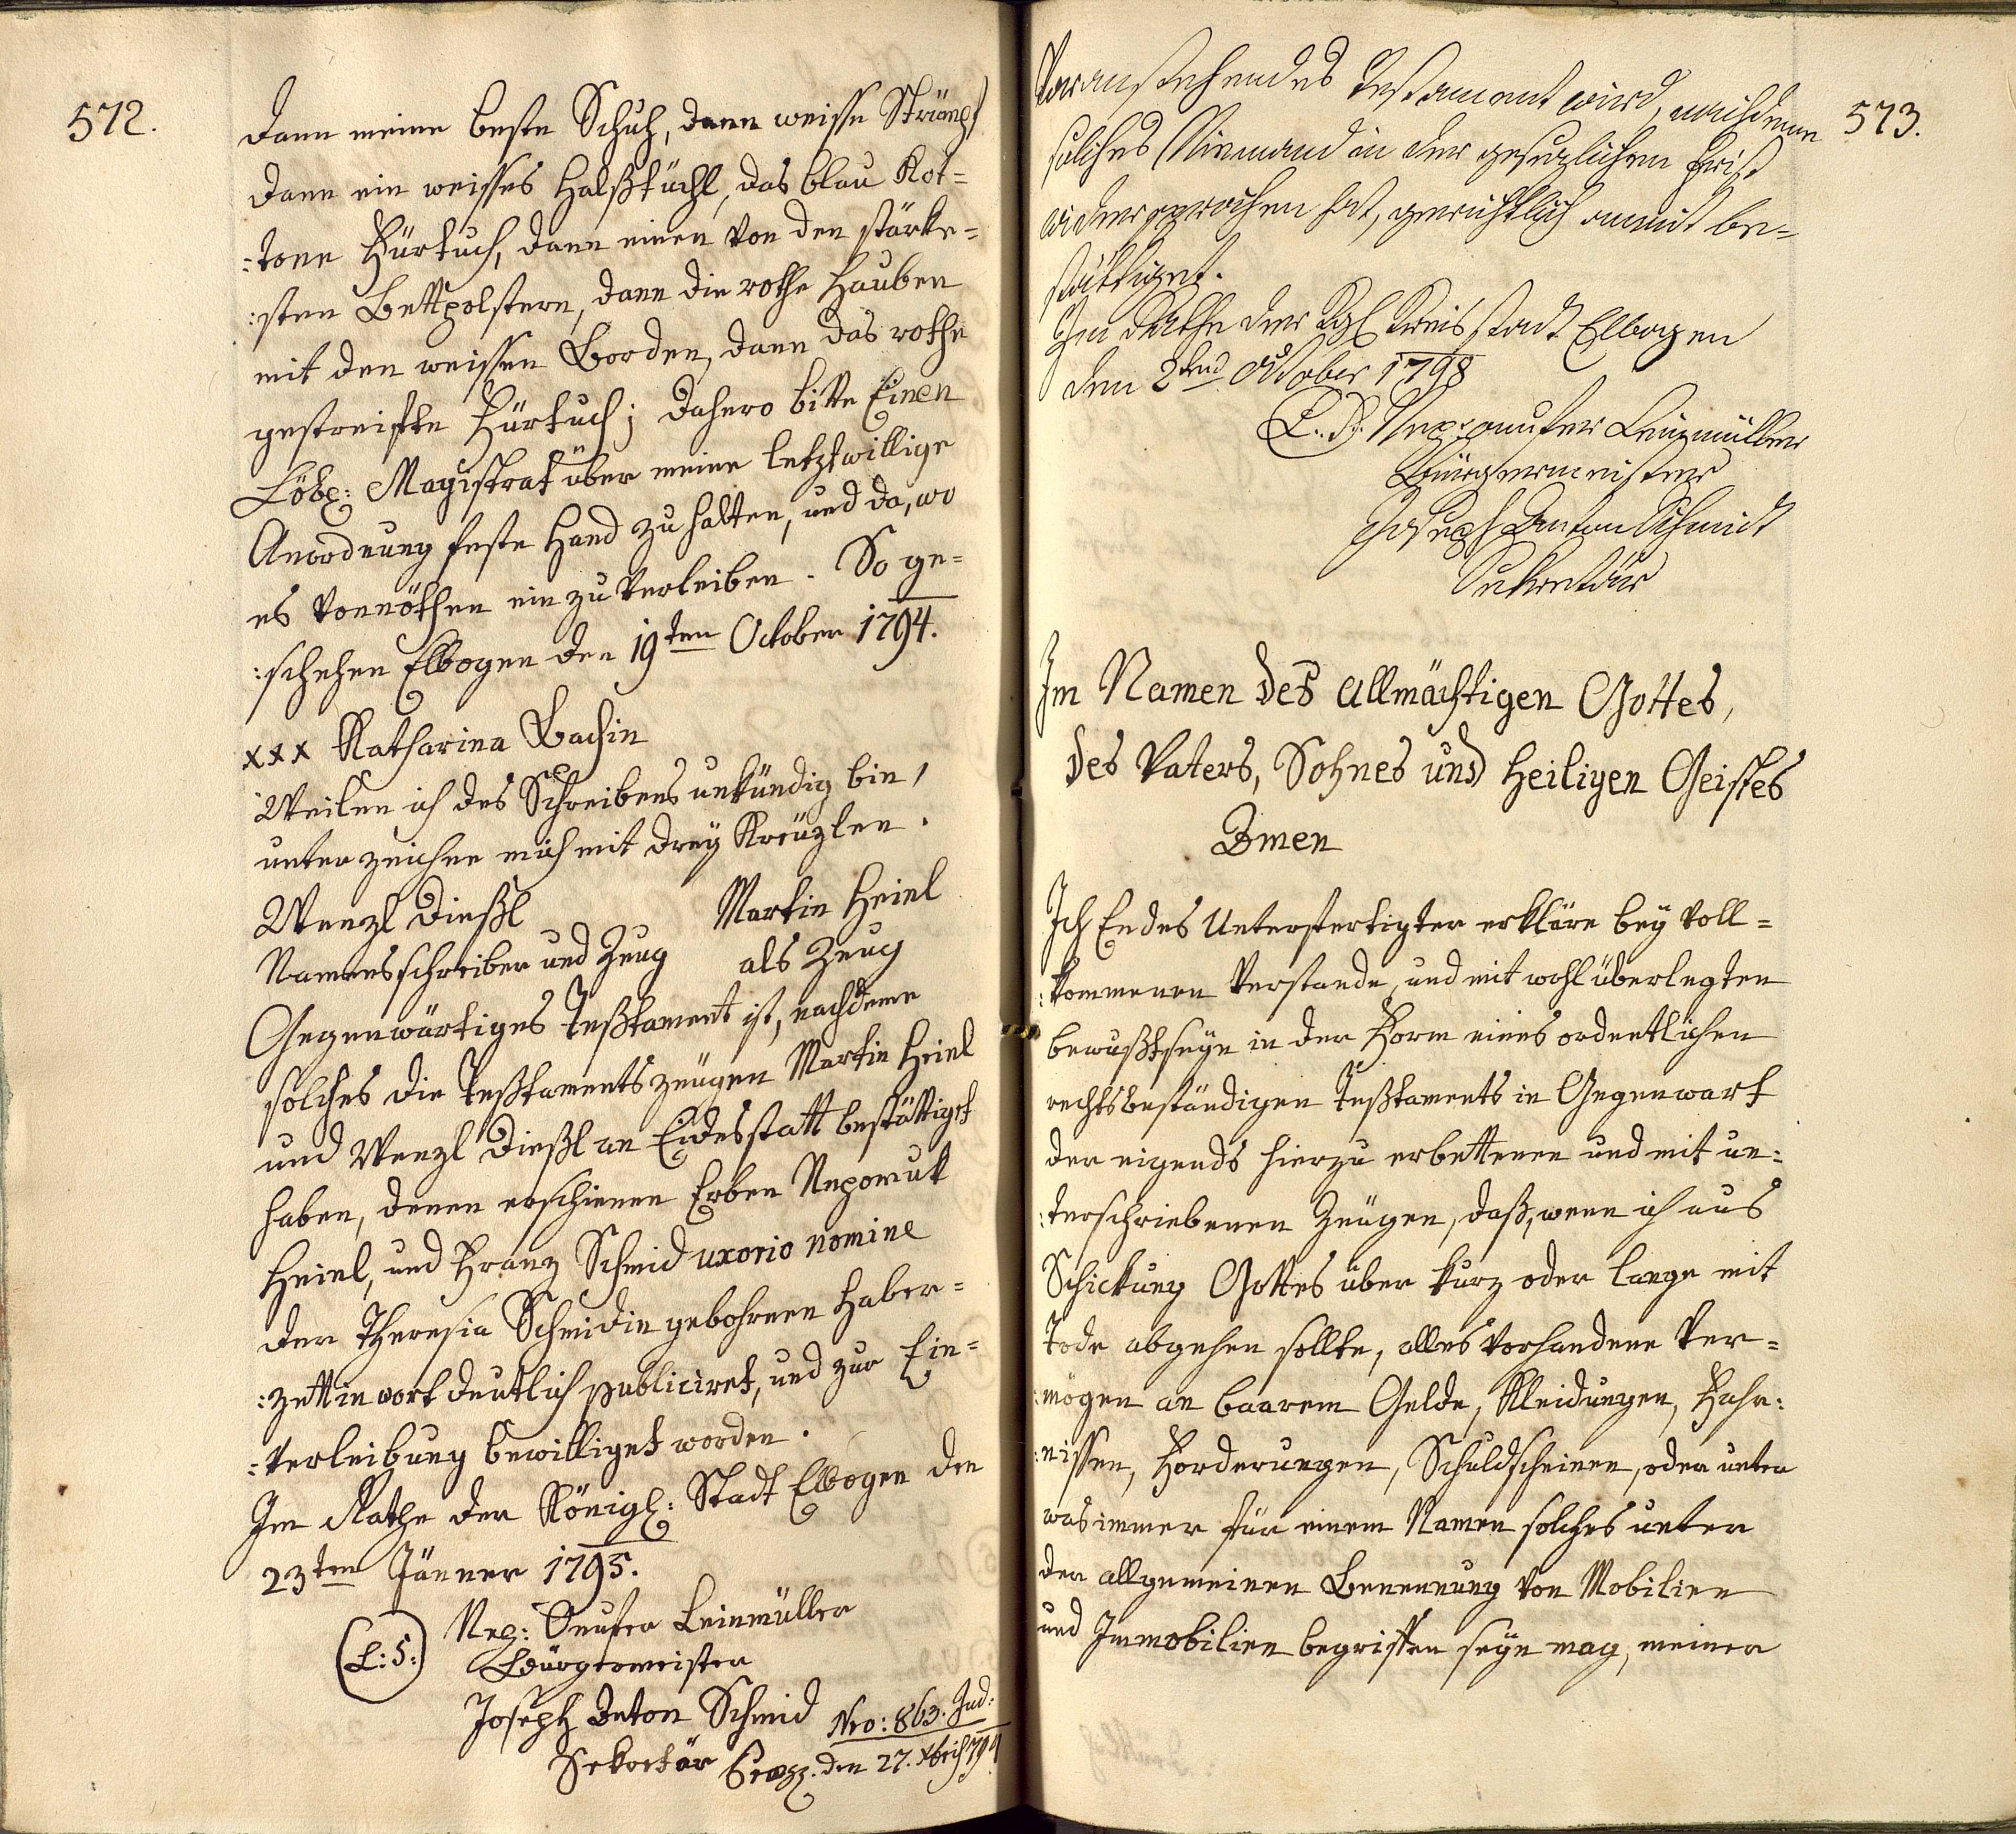 572.
dann meine beste Schuh, dann weisse Strümpf
dann ein weisses Halßtüchl, das blau Kot=
:tone Fürtuch, dann einen von den stärke=
:sten Bettpolstern, dann die rothe Hauben
mit den weissen Borden, dann das rothe
gestreifte Fürtuch; dahero bitte Einen
Löbl: Magistrat über meine letztwillige
Anordnung feste Hand zu halten, und da, wo
es vonnöthen ein zu verleiben. So ge=
:schehen Elbogen den 19ten October 1794.
xxx Katharina Bachin
Weilen ich des Schreibens unkündig bin,
unterzeichne mich mit drey Kreüzlen.
Wenzl Dießl Martin Heinl
Namensschreiber und Zeug als Zeug
Gegenwärtiges Teßtament ist, nachdeme
solches die Teßtamentszeügen Martin Heinl
und Wenzl Dießl an Eidesstatt bestättiget
haben, denen erschienen Erben Nepomuk
Heinl, und Franz Schmid uxorio nomine
der Theresia Schmidin gebohrnen Haber=
:zettin wortdeutlich publiciret, und zur Ein=
:verleibung bewilliget worden.
Im Rathe der Königl: Stadt Elbogen den
23ten Jänner 1795.
(L:S:) Nep: Onufer Leinmüller
Bürgermeister
Joseph Anton Schmid
Sekretär
Nro: 863. Jud:
den 27. Xbris 794
573.
Voranstehendes Testament wird, nachdeme
solches Niemand in der gesezlichen Frist
widersprochen hat, gerichtlich anmit be=
stättiget.
Im Rathe der Kgl Kreisstadt Elbogen
den 2ten October 1798
L. S. Nep: onufer Leinmüller
Bürgermeister
Joseph Anton Schmidt
Sekretär
Im Namen des allmächtigen Gottes,
des Vaters, Sohnes und Heiligen Geistes
Amen
Ich Endes Unterfertigter erkläre bey voll=
:kommenen Verstande, und mit wohl überlegten
bewußtseyn in der Form eines ordentlichen
rechtsbeständigen Teßtaments in Gegenwart
der eigends hierzu erbettenen und mit un:
:terschriebenen Zeügen, daß, wenn ich aus
Schickung Gottes über kurz oder lange mit
Tode abgehen sollte, alles vorhandene Ver=
:mögen an baarem Gelde, Kleidungen, Fahr:
:nissen, Forderungen, Schuldscheinen, oder unter
was immer für einem Namen solches unter
der allgemeinen Benennung von Mobilien
und Immobilien begriffen seyn mag, meiner